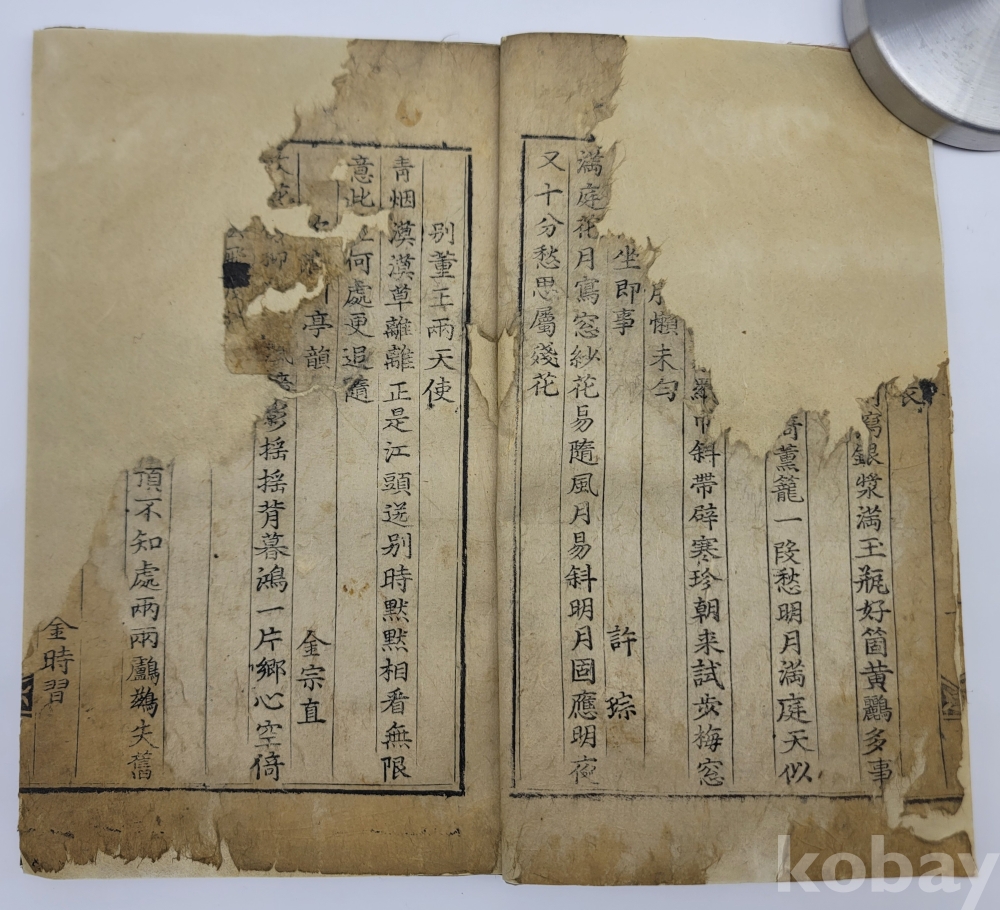 寫銀漿滿玉瓶好箇黃鸝多事
薰籠一段愁明月滿庭天似
斜帶辟寒珍朝来試步梅窓
懶未勻
坐即事 許琮
滿庭花月寫窓紗花易隨風月易斜明月固應明夜
又十分愁思屬殘花
別董王兩天使
青烟漠漠草離離正是江頭送別時黙黙相看無限
意此 何處更追隨
亭韻 金宗直
影搖搖背暮鴻一片鄉心空倚
頂不知處兩兩鸕鷀失舊
金時習
kobay